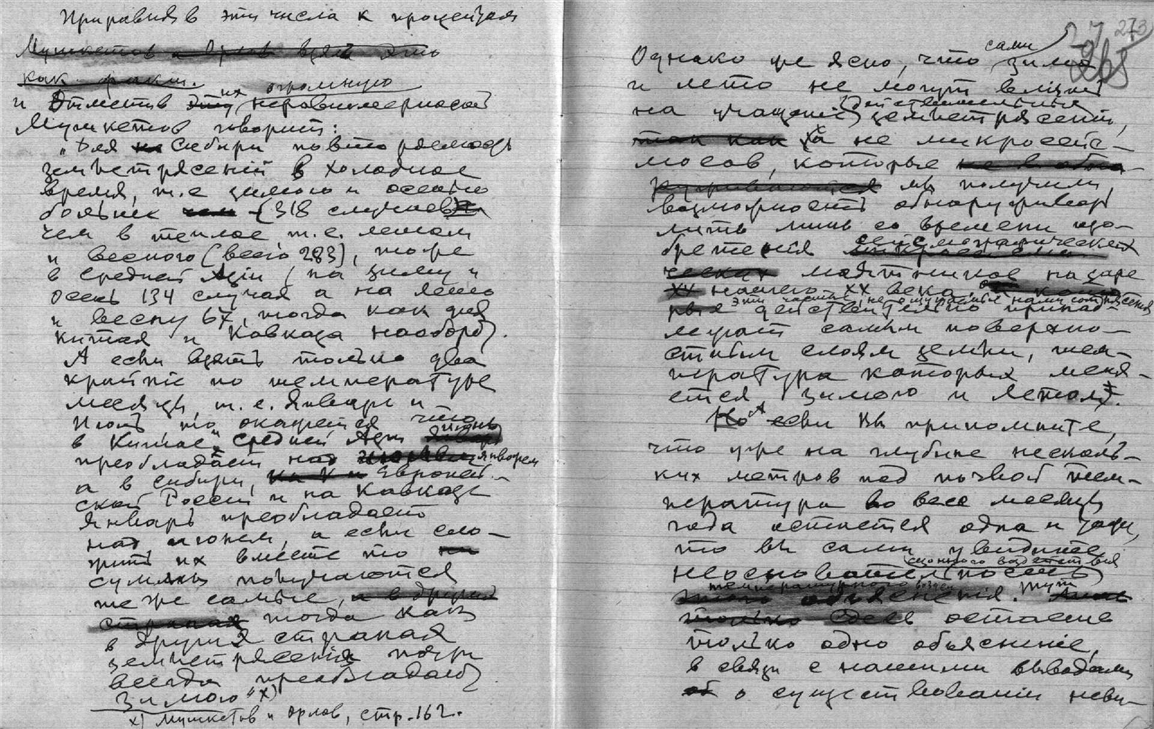 Приравняв эти числа к процентам
Мушкетов и Орлов взяв это
как факт.
их огромную
и отметив эту неравномерность
Мушкетов говорит:
"Для Сибири повторяемость
землетрясений в холодное
время, т.е. зимою и осенью
больше чем (318 случаев)
чем в теплое, т.е. летом
и весною (всего 283), тоже
в Средней Азии (на зиму и
осень 134 случая а на лето
и весну 67, тогда как для
Китая и Кавказа наоборот.
А если взять только два
крайние по температуре
месяцы, т.е. январь и
июль то окажется что
в Китае и средней Азии июль
преобладает над январем
а в Сибири, Европей-
ской России и на Кавказе
январь преобладает
над июлем, а если сло-
жить их вместе то
суммы получаются
те же самые, а в других
странах тогда как
в других странах
землетрясения почти
всегда преобладают
зимою" х)
х) Мушкетов и Орлов, стр. 162.
27 273
265
сами
Однако же ясно, что зима
и лето не могут влиять
действительных
на учащение землетрясений,
так как а не микросейс-
мосов, которые
мы получили
возможность обнаружи-
лишь со времени изо-
бретения сейсмографических
маятников на заре
нашего XX века
эти частые, не ощущаемые нами сотрясения
действительно принад-
лежат самым поверхно-
стным слоям земли, тем-
пература которых меня-
ется зимою и летом.
Но А если вы припомните,
что уже на глубине несколь-
ких метров под почвой тем-
пература во все месяцы
года остается одна и та же,
то вы сами увидите
неосновательность
температурного
объяснения. Тут
здесь остается
только одно объяснение,
в связи с нашими выводами
о существовании неви-